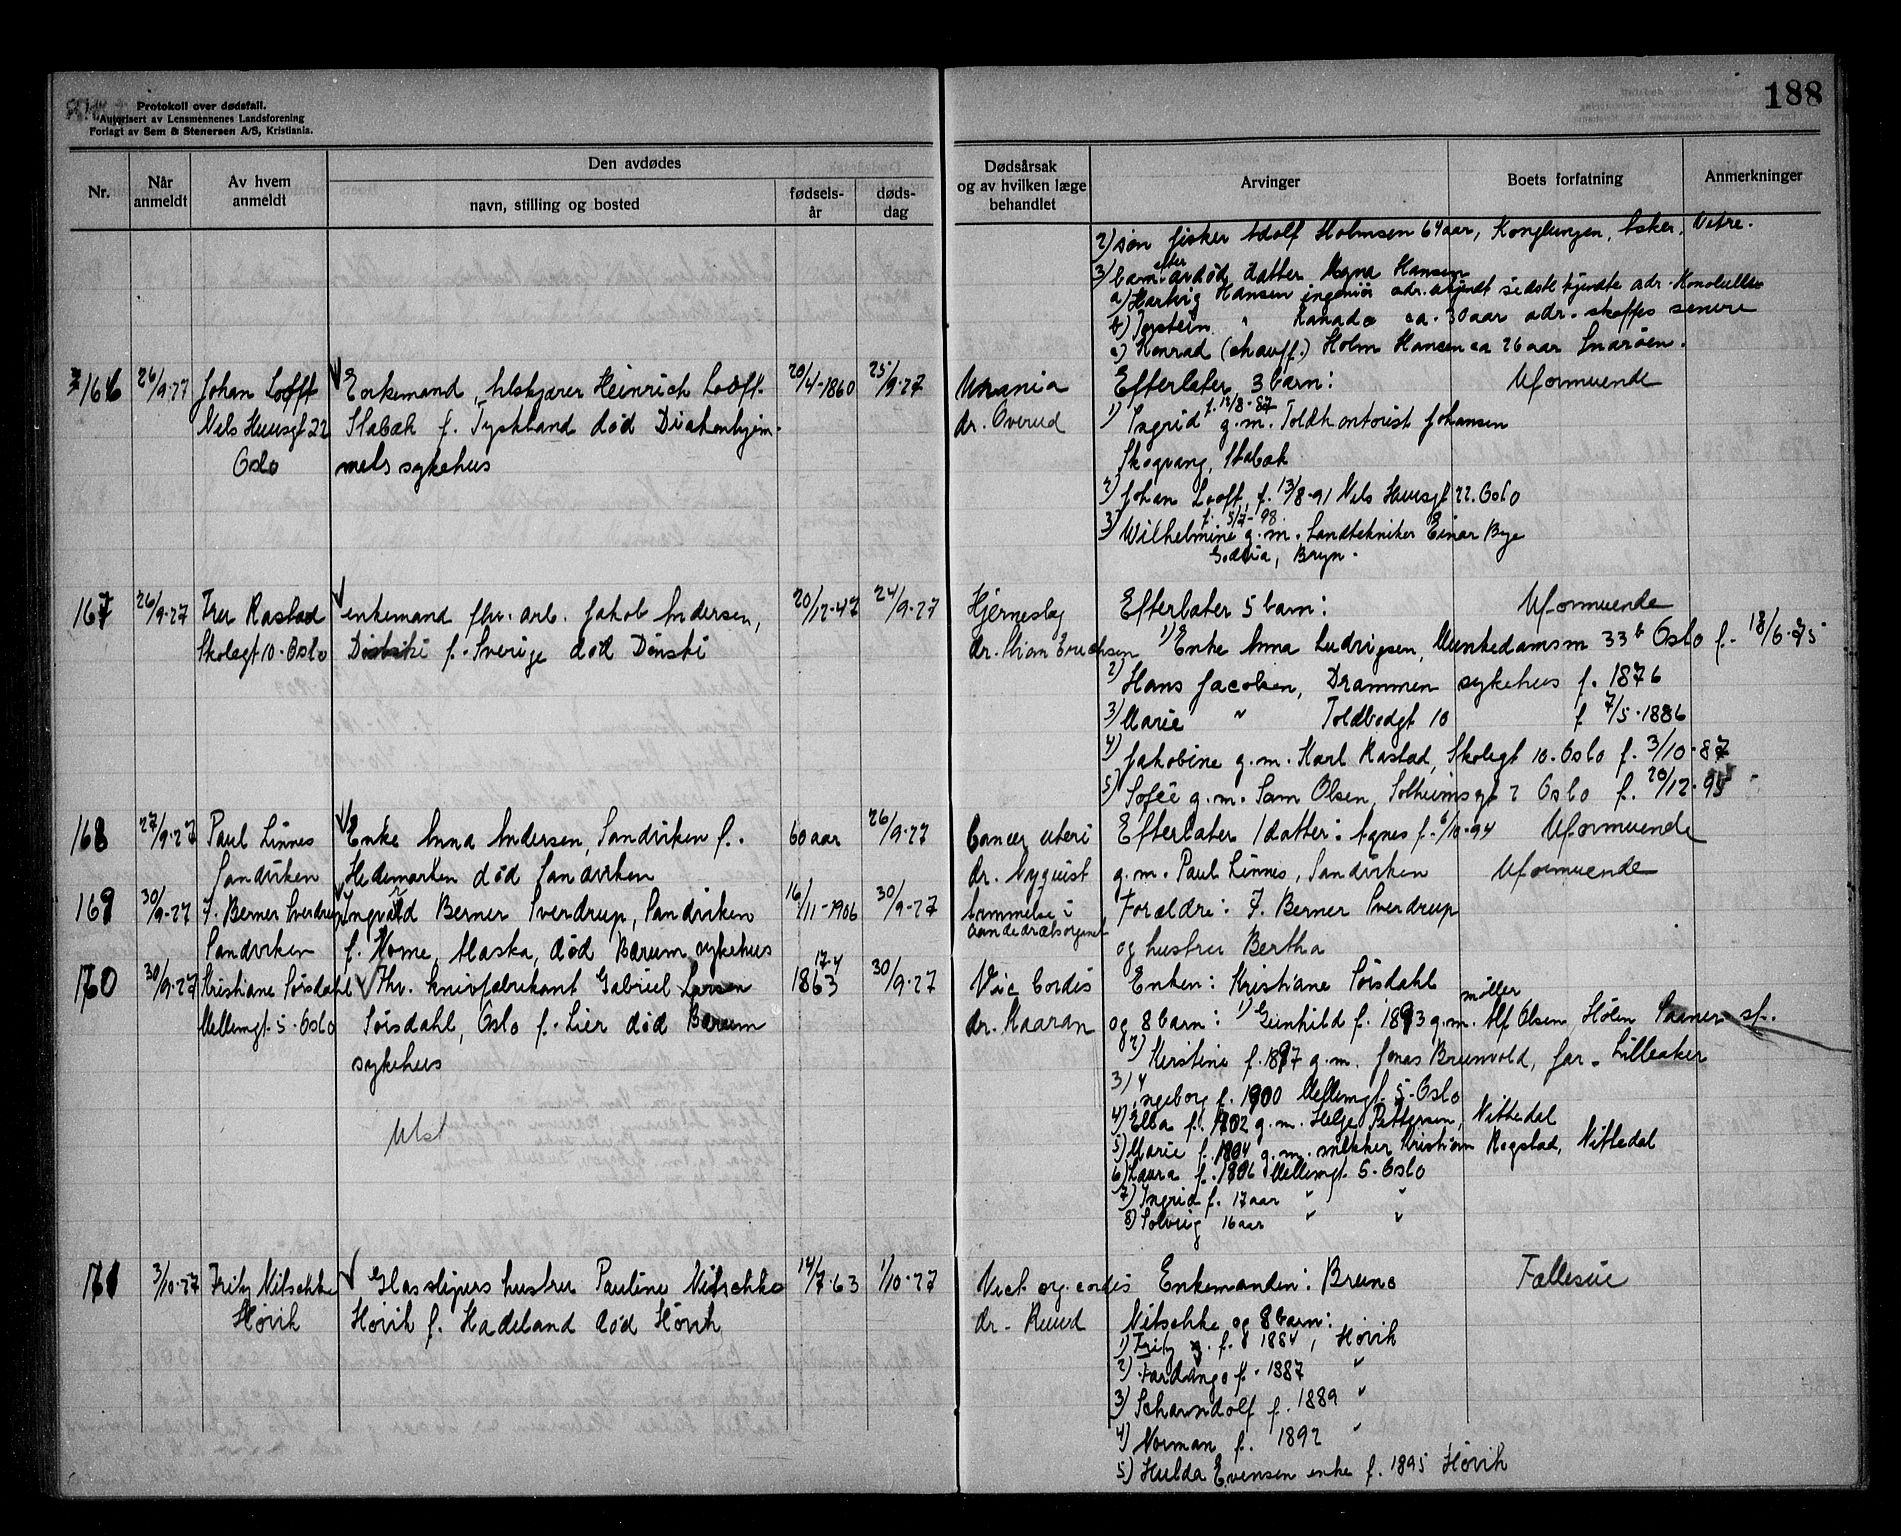 188
Protokoll over dødsfall.
Autorisert av Lensmennenes Landsforening
Forlagt av Sem & Stenersen A/S, Kristiania.
Nr.
Når anmeldt
Av hvem anmeldt
Den avdødes
navn, stilling og bosted
fødsels-år
døds-dag
Dødsårsak og av hvilken læge behandlet
Arvinger
Boets forfatning
Anmerkninger
2) søn fisker Adolf Holmsen 64 aar, Konglungen, Asker, Vetre.
3) barn efter avdød datter Magna Hansen
a) Hartvig Hansen ingeniør adr. ukjendt sidste kjendte adr. Honolulu
b) " Kanada ca. 30 aar adr. skaffes senere
c) Konrad (chauff.) Holm Hansen ca 26 aar Snarøen.
166 26/9-27 Johan Looft Enkemand, Heinrich Looft 20/4-1860 25/9-27 Urænia Efterlater 3 barn: Uformuende
Nels Huusgt 22 Stabæk f. Tyskland død Diakonhjem- dr. Overud 1) Ingrid f. 12/8-87 g.m. Toldkontorist Johansen
Oslo mets sykehus Skogvang, Stabæk
2) Johan Looft, f. 13/8-91 Nels Huusgt 22. Oslo
3) Wilhelmine f. 5/7-98 g.m. Landtekniker Einar Bye
Bryn.
167 26/9-27 Fru Rastad enkemand fhv. arb. Jakob Andersen, 20/12-47 24/9-27 Hjerneslag Efterlater 5 barn: Uformuende
Skolegt 10 - Oslo f. Sverige død Dønski dr. Erichsen 1) Enke Anna Ludvigsen, Munkedamsvn 33 b Oslo f. 18/6-75
2) Hans Jacobsen, Drammen sykehus f. 1876
3) Marie " Toldbodgt 10 f 7/5-1886
4) Jakobine g.m. Karl Rastad, Skolegt 10. Oslo f. 3/10-87
5) Sofie g.m. Sam Olsen, Solheimsgt 2 Oslo f. 20/12-95
168 27/9-27 Paul Linnes Enke Anna Andersen, Sandviken f. 60 aar 26/9-27 Cancer uteri Efterlater 1 datter: Agnes f. 6/10-94 Uformuende
Sandviken Hedemarken død Sandviken dr. Nyquist g.m. Paul Linnes, Sandviken Uformuende
169 30/9-27 F. Berner Sverdrup Ingvald Berner Sverdrup, Sandviken 16/11-1906 30/9-27 Lammelse i Forældre: F. Berner Sverdrup
Sandviken f. Nome, Alaska, død Bærum sykehus aandedrætsorganet og hustru Bertha
170 30/9-27 Kristiane Sørsdahl Fhv. knivfabrikant Gabriel Larsen 17-4 1863 30/9-27 Vic Cordis Enken: Kristiane Sørsdahl
Mellemgt. 5 - Oslo Sørsdahl, Oslo f. Lier død Bærum dr. Kaaran og 8 barn: 1) Gunhild f. 1893 g.m. møller Alf Olsen, Hølen Saaner st.
sykehus 2) Kirstine f. 1897 g.m. Jonas Brunvold, Jar - Lilleaker
3) Ingeborg f. 1900 Mellemgt. 5 - Oslo
Utst 4) Ella f. 1902 g.m. Helge Pettersen, Nittedal
5) Marie f. 1904 g.m. snekker Kristian Rogstad, Nittedal
6) Laura f. 1906 Mellemgt. 5 - Oslo
7) Ingrid f. 17 aar " "
8) Solveig 16 aar " "
171 3/10-27 Fritz Nitschke Glasslipers hustru Pauline Nitschke 14/7-63 1/10-27 Vect org. cordis Enkemanden: Bruno Fællesie
Høvik Høvik f. Hadeland død Høvik dr. Ruud Nitschke og 8 barn:
1) Fritz f. 1884, Høvik
2) f. 1887 "
3) Scharndolf f. 1889 "
4) Norman f. 1892 "
5) Hulda Evensen enke f. 1895 Høvik